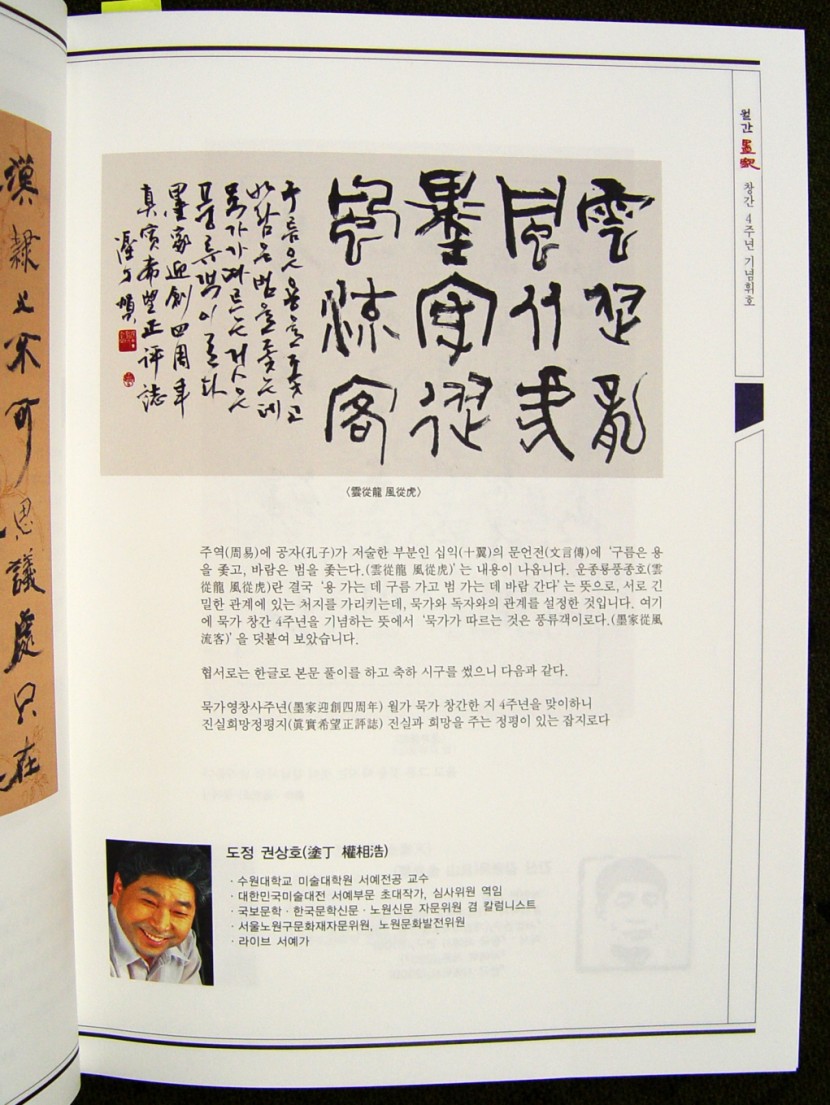 漢隷
可思議處只在
雲從龍
風從虎
墨家從
風流客
구름은 용을 좇고
바람은 범을 좇는데
묵가가 따르는 것은
풍류객이로다
墨家迎創四周年
眞實希望正評誌
〈雲從龍 風從虎〉
주역(周易)에 공자(孔子)가 저술한 부분인 십익(十翼)의 문언전(文言傳)에 ‘구름은 용
을 좇고, 바람은 범을 좇는다.(雲從龍 風從虎)’는 내용이 나옵니다. 운종룡풍종호(雲
從龍 風從虎)란 결국 ‘용 가는 데 구름 가고 범 가는 데 바람 간다’는 뜻으로, 서로 긴
밀한 관계에 있는 처지를 가리키는데, 묵가와 독자와의 관계를 설정한 것입니다. 여기
에 묵가 창간 4주년을 기념하는 뜻에서 ‘묵가가 따르는 것은 풍류객이로다.(墨家從風
流客)’을 덧붙여 보았습니다.
협서로는 한글로 본문 풀이를 하고 축하 시구를 썼으니 다음과 같다.
묵가영창사주년(墨家迎創四周年) 월가 묵가 창간한 지 4주년을 맞이하니
진실희망정평지(眞實希望正評誌) 진실과 희망을 주는 정평이 있는 잡지로다
도정 권상호(塗丁 權相浩)
· 수원대학교 미술대학원 서예전공 교수
· 대한민국미술대전 서예부문 초대작가, 심사위원 역임
· 국보문학 · 한국문학신문 · 노원신문 자문위원 겸 칼럼니스트
· 서울노원구문화재자문위원, 노원문화발전위원
· 라이브 서예가
월간 墨家 창간 4주년 기념휘호